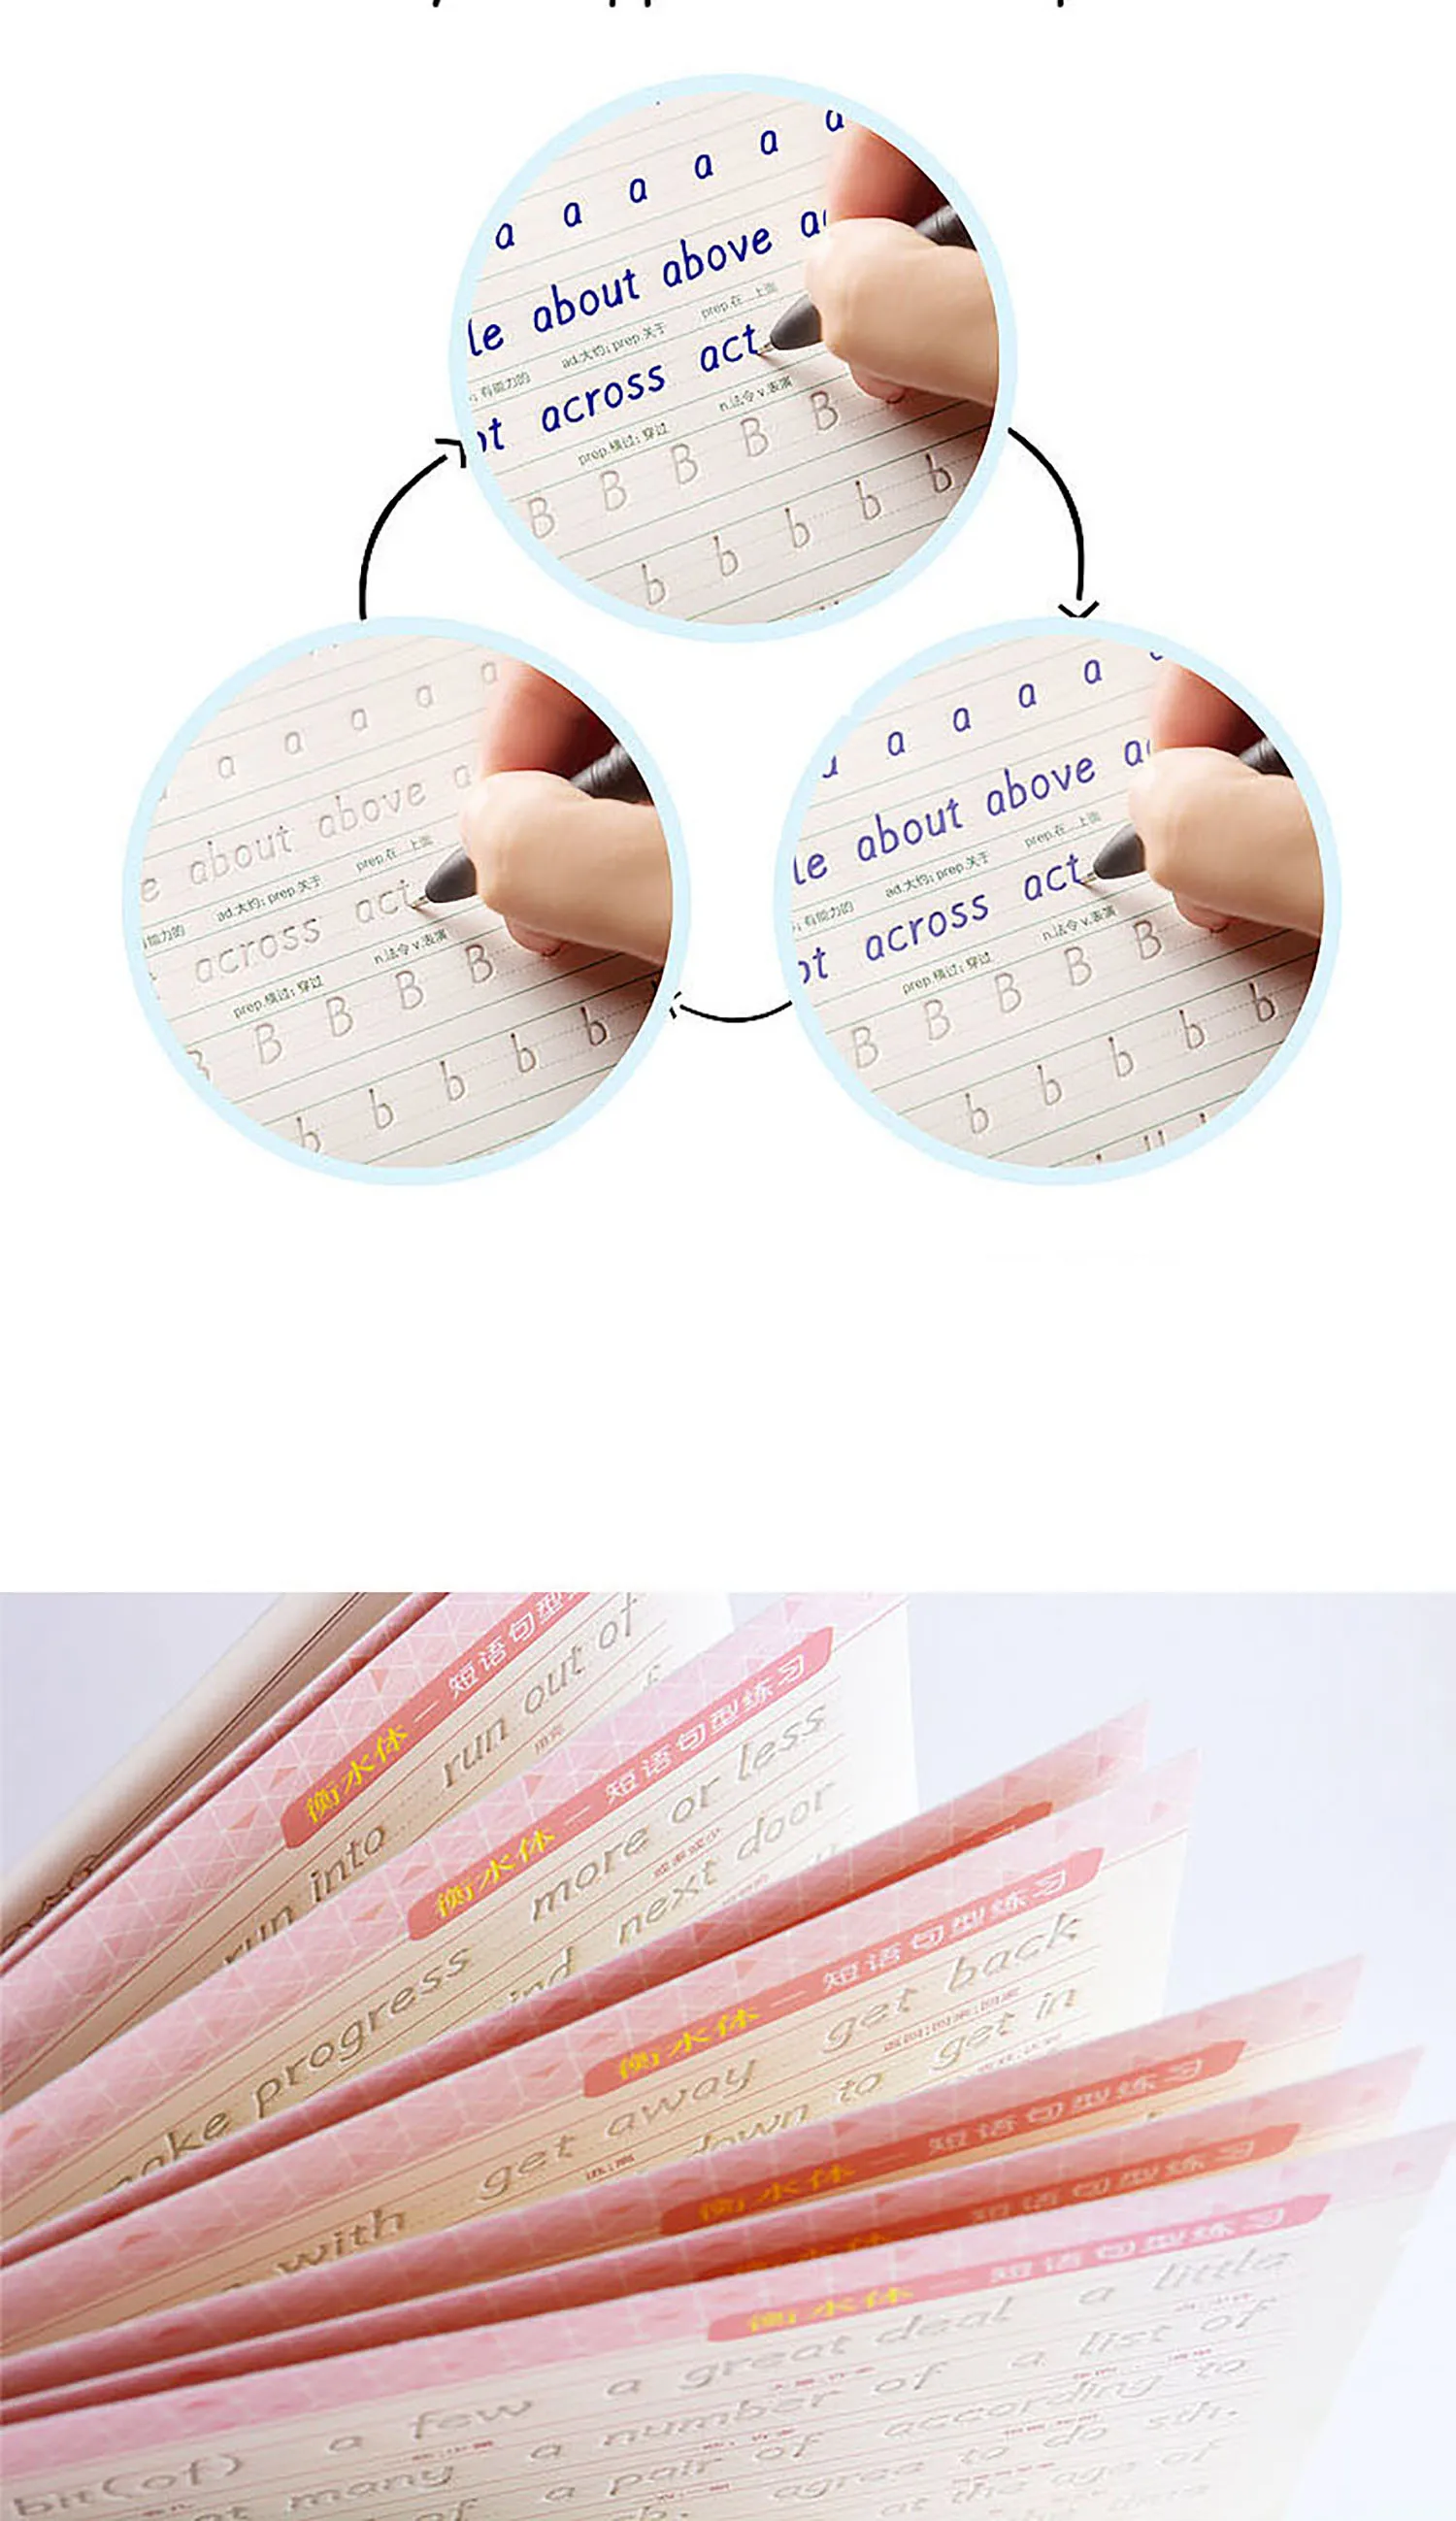 a a a a a a
le about above ac
ad.大约; prep.关于 prep.在…上面
有能力的
ot across act
prep.横过; 穿过 n.法令 v.表演
B B B B B
b b b b b
a a a a a
e about above a
ad.大约; prep.关于 prep.在…上面
能力的
across act
prep.横过; 穿过 n.法令 v.表演
B B B B B
b b b b b
a a a a a
le about above ac
ad.大约; prep.关于 prep.在…上面
有能力的
ot across act
prep.横过; 穿过 n.法令 v.表演
B B B B B
b b b b b
衡水体 — 短语句型
run into run out of
用完
衡水体 — 短语句型练习
make progress more or less
next door
衡水体 — 短语句型练习
with get away get back
down to get in
衡水体 — 短语句型练习
衡水体 — 短语句型练习
衡水体 — 短语句型练习
bit(of) a few a great deal a little
many a number of a list of
of a pair of according to
agree to do sth.
at the age of